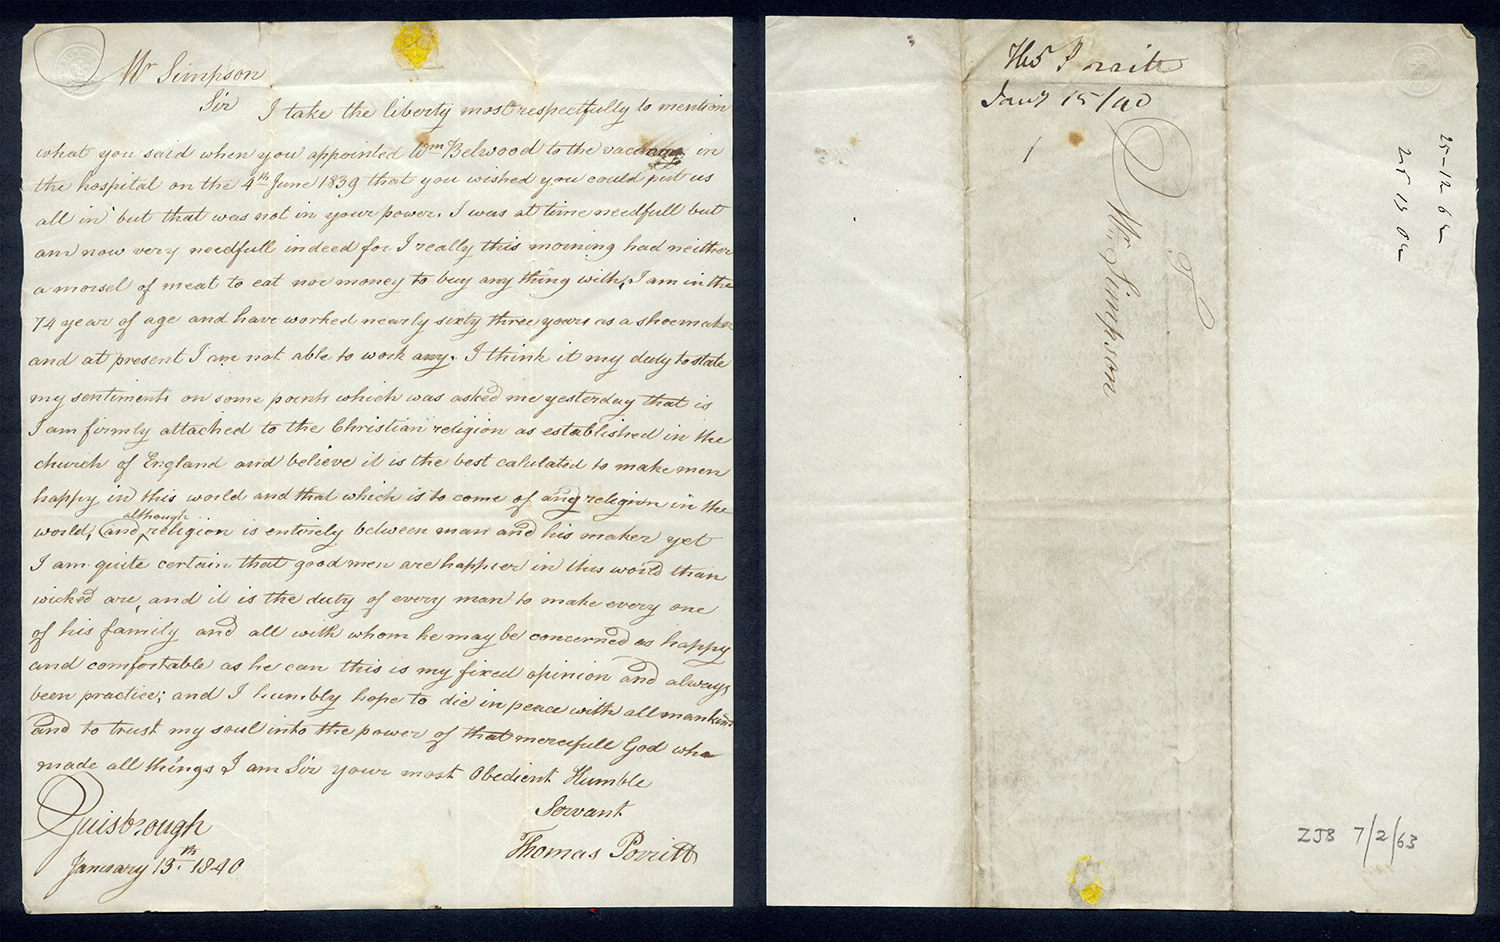 Mr Simpson
Sir I take the liberty most respectfully to mention
what you said when you appointed Wm Belwood to the in
the hospital on the 4th June 1839 that you wished you could put us
all in but that was not in your power. I was at time needfull but
am now very needfull indeed for I really this morning had neither
a morsel of meat to eat nor money to buy any thing with, I am in the
74 year of age and have worked nearly sixty three years as a shoemaker
and at present I am not able to work any. I think it my duty to state
my sentiments on some points which was asked me yesterday that is
I am firmly attached to the Christian religion as established in the
church of England and believe it is the best calulated to make men
happy in this world and that which is to come of any religion in the
world, and although religion is entirely between man and his maker yet
I am quite certain that good men are happier in this world than
wicked are, and it is the duty of every man to make every one
of his family and all with whom he may be concerned as happy
and comfortable as he can this is my fixed opinion and always
been practice; and I humbly hope to die in peace with all mankind
and to trust my soul into the power of that mercifull God who
made all things I am Sir your most Obedient Humble
Servant
Guisbrough Thomas Porritt
January 13th 1840
Thos Porritt
Jany 15/40
To
Mr Simpson
ZJB 7/2/63